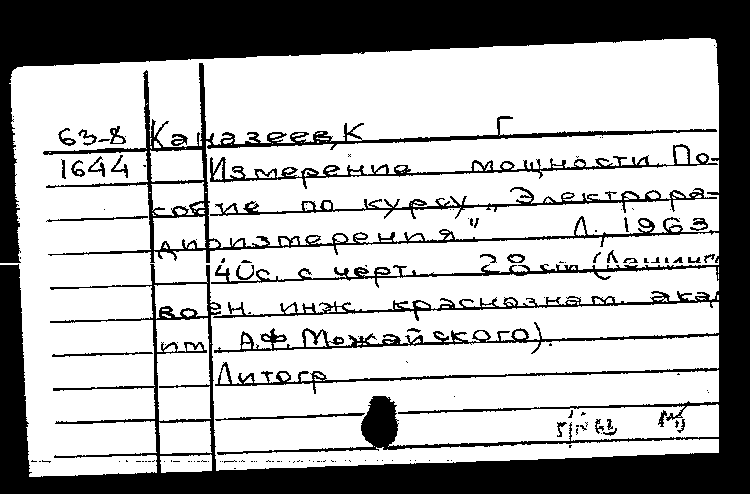 63-8 Каназеев, К Г
1644 Измерение мощности. По-
собие по курсу „Электрора-
диоизмерения“ Л., 1963.
40с. с черт. 28 cm (Ленинг
воен. инж. краснознам. ака
им. А.Ф. Можайского).
Литогр